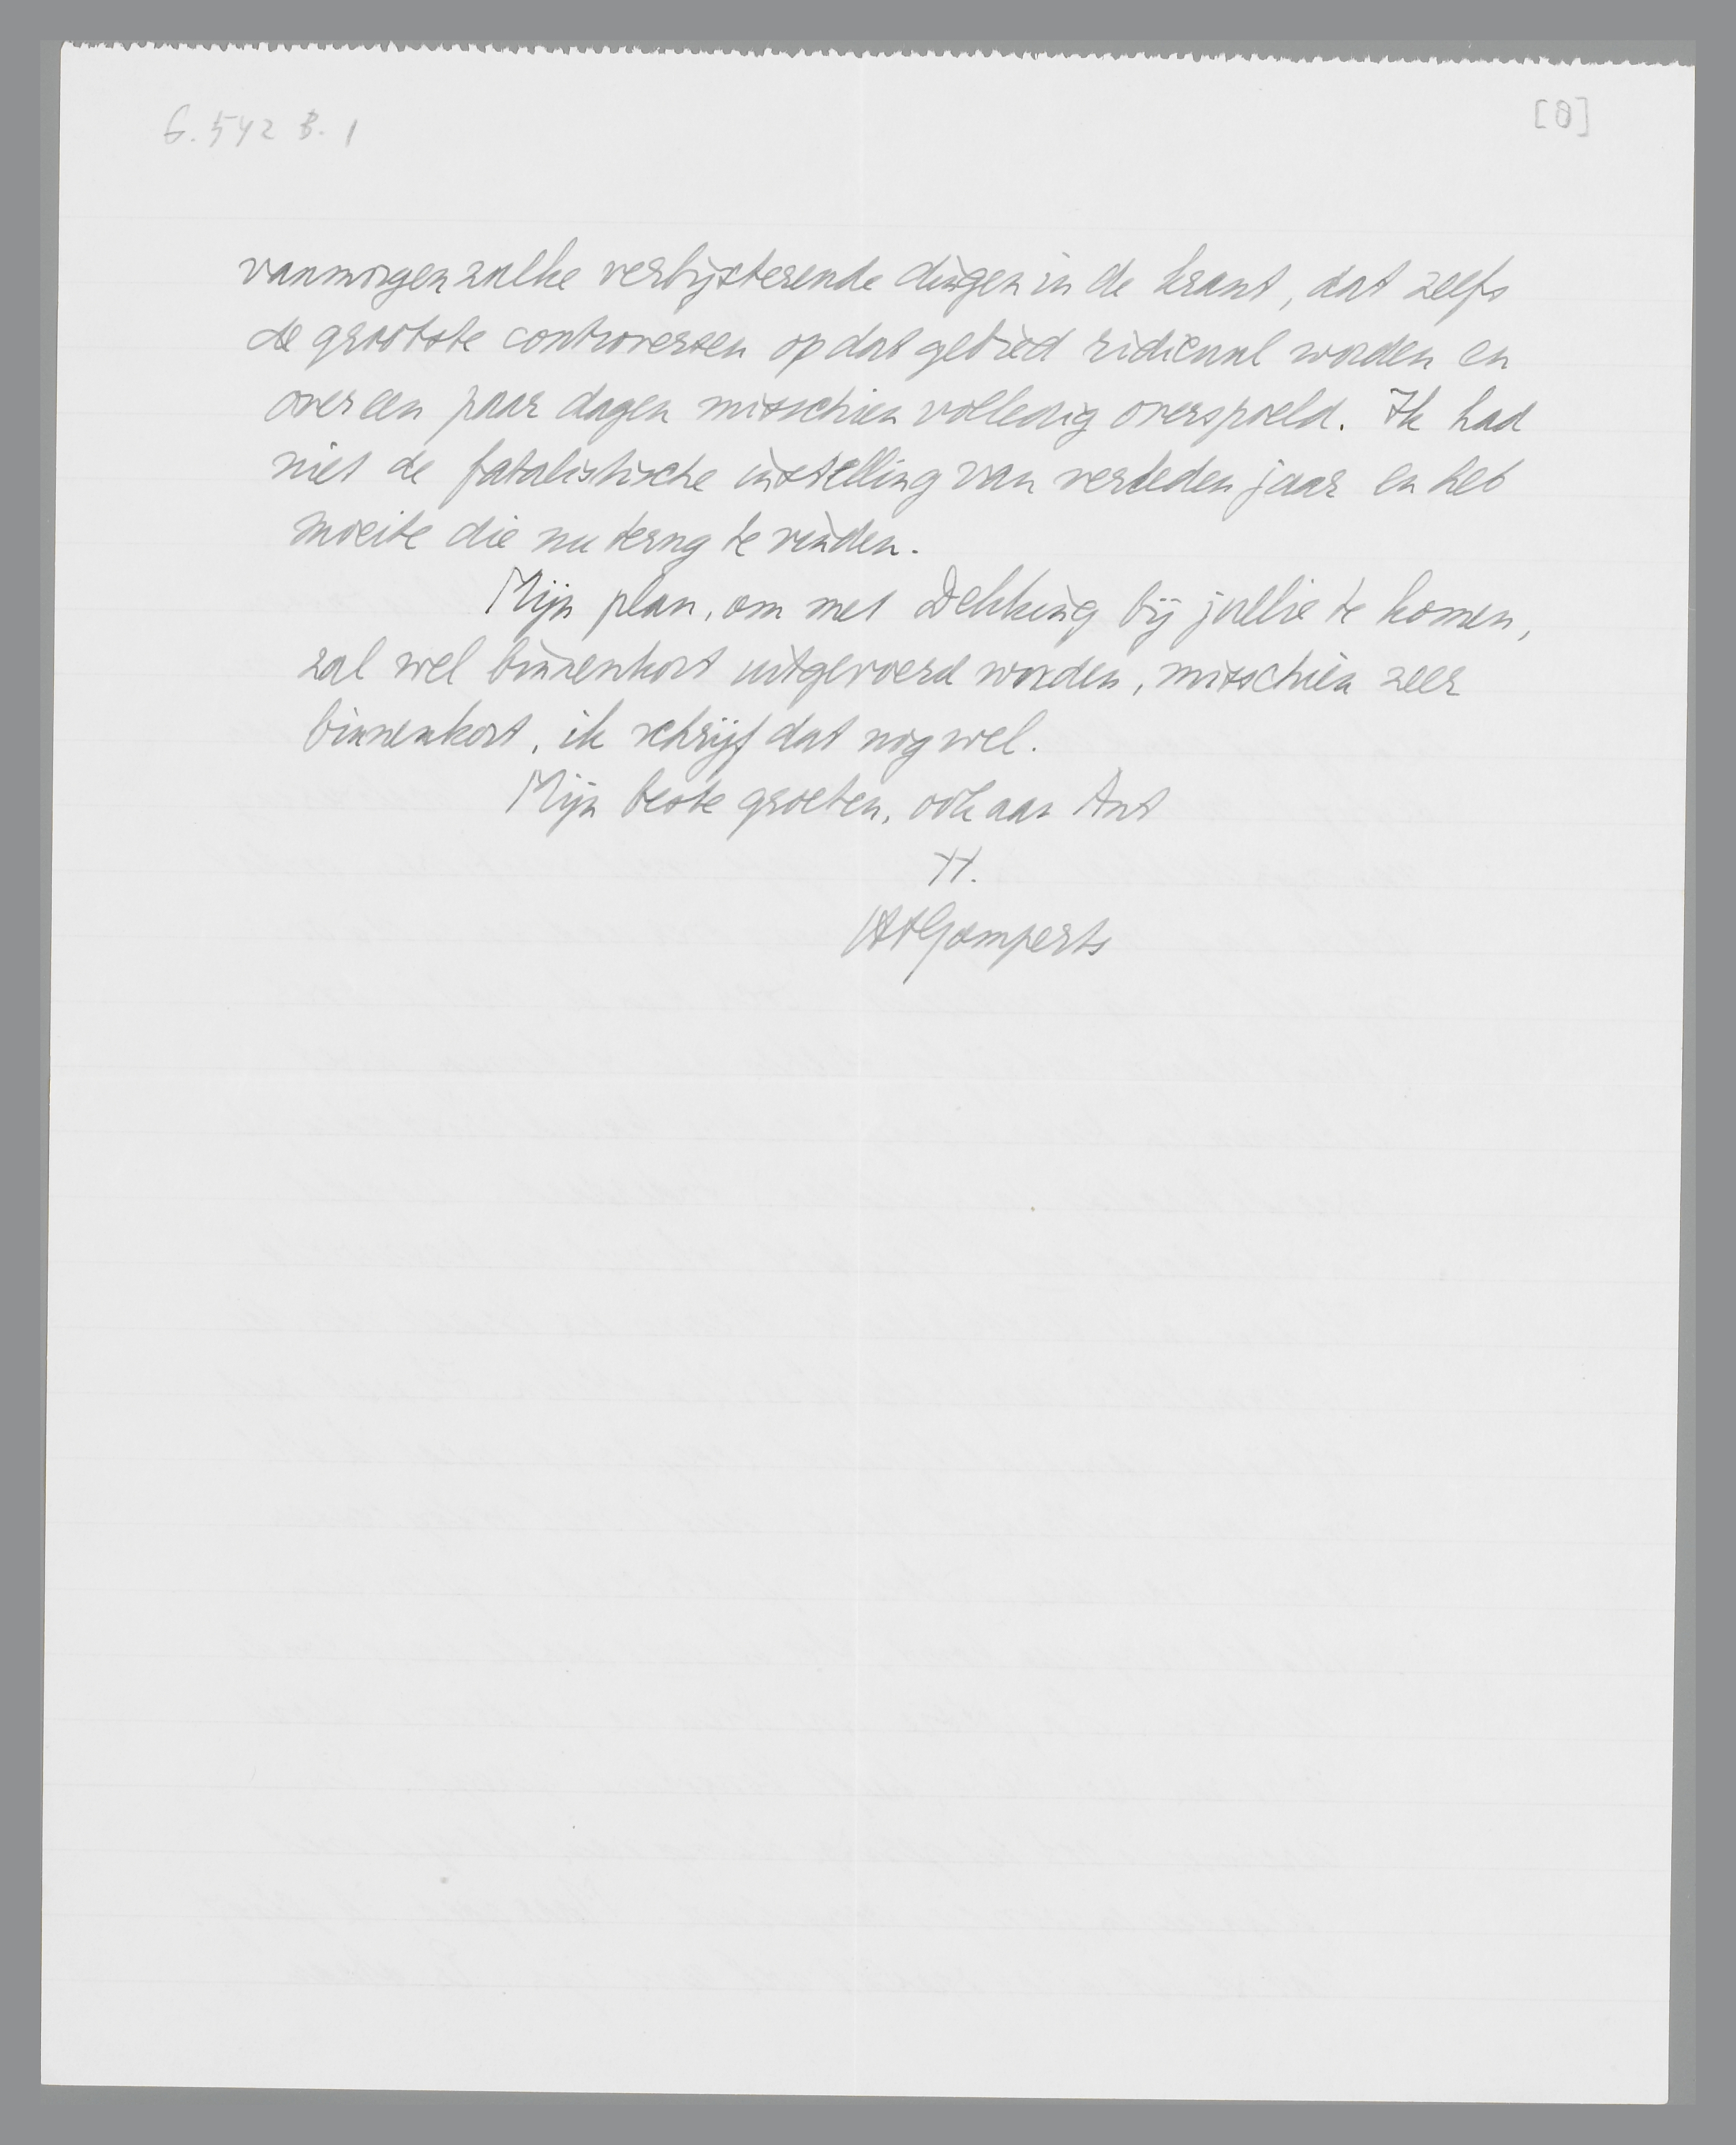 G. 542 B. 1
[8]
vanmorgen zulke verbijsterende dingen in de krant, dat zelfs
de grootste controversen op dat gebied ridicuul worden en
over een paar dagen misschien volledig overspoeld. Ik had
niet de fatalistische instelling van verleden jaar en heb
moeite die nu terug te vinden.
Mijn plan, om met Dekking bij jullie te komen,
zal wel binnenkort uitgevoerd worden, misschien zeer
binnenkort, ik schrijf dat nog wel.
Mijn beste groeten, ook aan Ant
tt.
HAGomperts